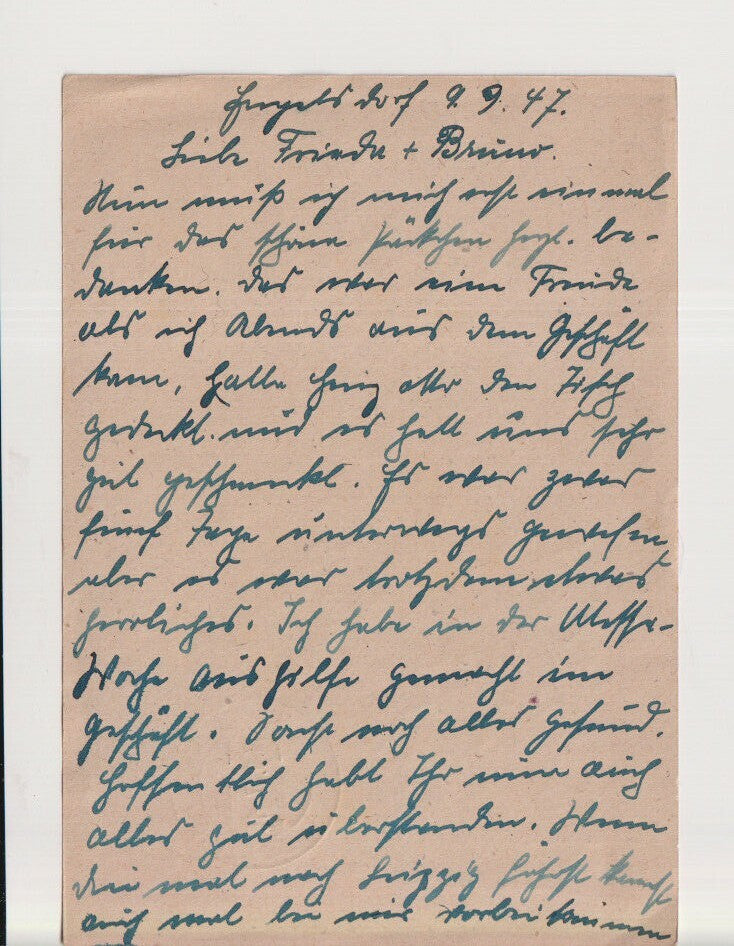 Engelsdorf 9.9.47.
Liebe Frieda + Bruno.
Nun muß ich mich erst einmal
für das schöne Päckchen hrzl. be-
danken. Das war eine Freude
als ich Abends aus dem Geschäft
kam, hatte Heinz Otto den Tisch
gedeckt. und es hatt uns sehr
gut geschmeckt. Es war zwar
fünf Tage unterwegs gewesen
aber es war trotzdem etwas
herrliches. Ich habe in der Messe-
Woche aushilfe gemacht im
Geschäft. Sonst noch alles gesund.
Hoffentlich habt Ihr nun auch
alles gut überstanden. Wenn
du mal nach Leipzig fährst kannst
auch mal bei mir vorbei kommen